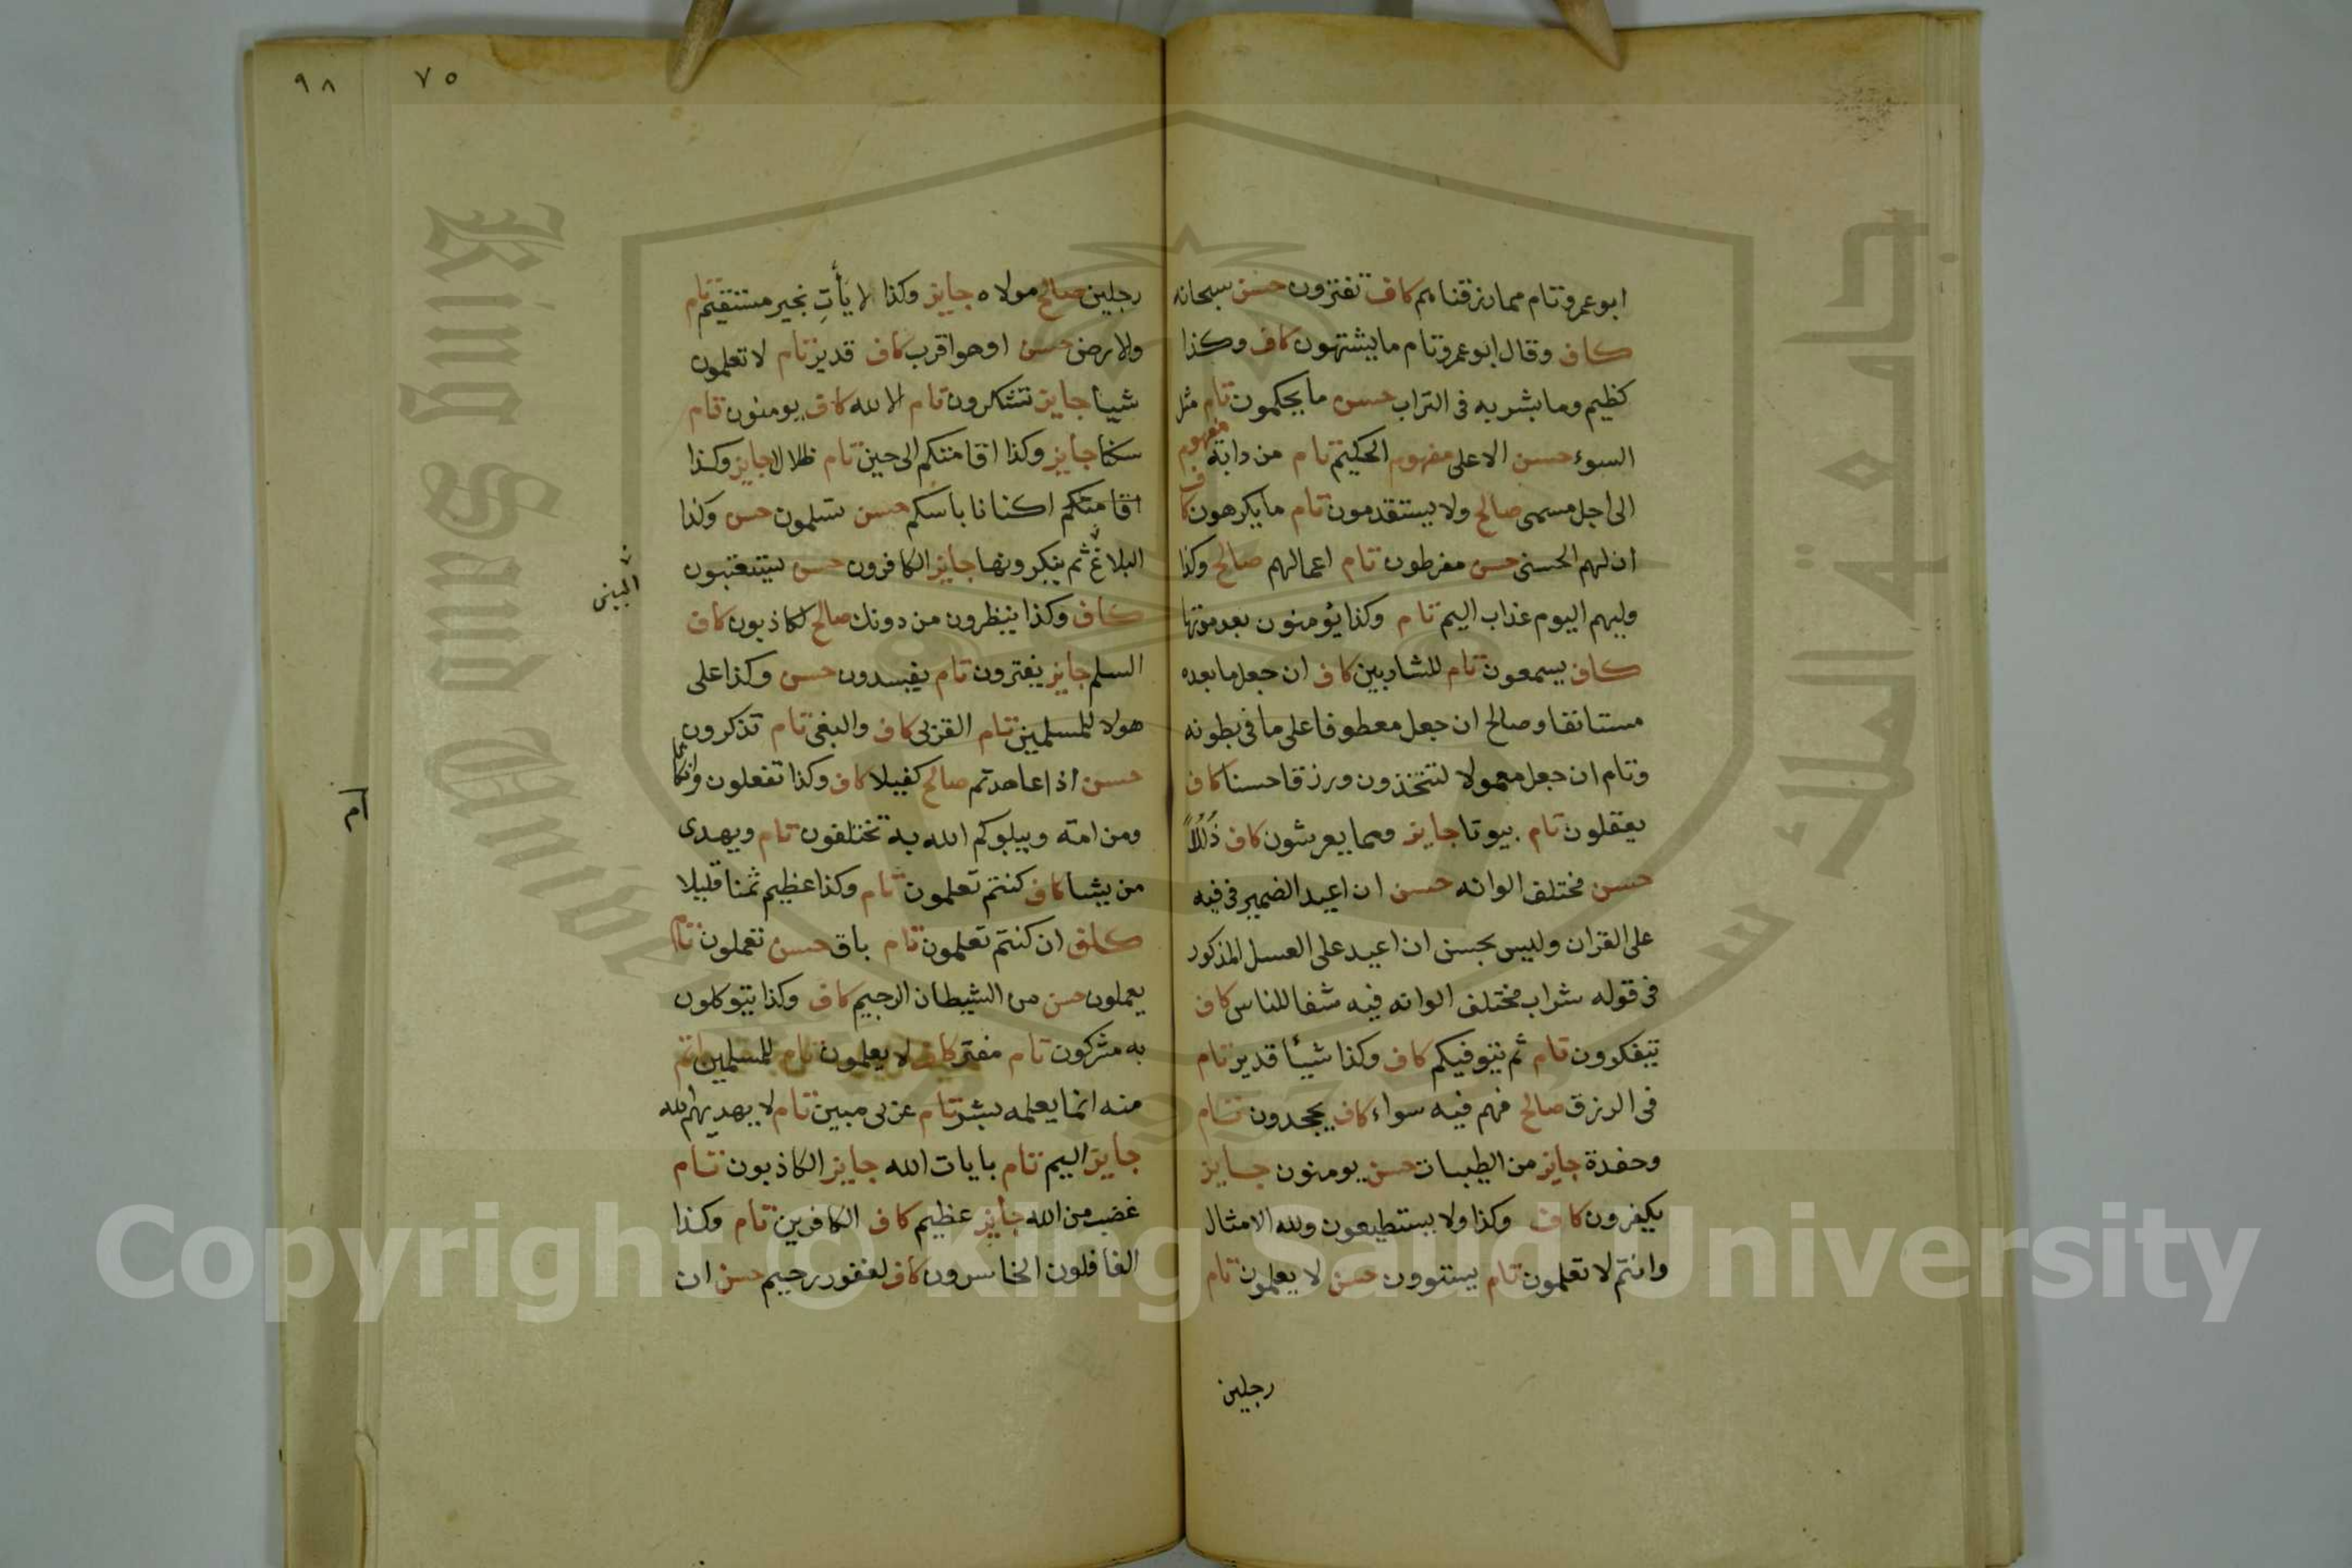 ابو عمرو تام مما رزقناهم كاف تفترون حسن سبحانه
كاف وقال ابو عمرو تام ما يشتهون كاف وكذا
كظيم وما بشر به في التراب حسن ما يحكمون تام مثل
السوء حسن الاعلى مفهوم الحكيم تام من دابة مفهوم
الى اجل مسمى صالح ولا يستقدمون تام ما يكرهون كاف
ان لهم الحسنى حسن مفرطون تام اعمالهم صالح وكذا
وليهم اليوم عذاب اليم تام وكذا يؤمنون بعد موتها
كاف يسمعون تام للشاربين كاف ان جعل ما بعده
مستانفا وصالح ان جعل معطوفا على ما في بطونه
وتام ان جعل معمولا لتتخذون ورزقا حسنا كاف
يعقلون تام بيوتا جايز ومما يعرشون كاف ذُلُلًا
حسن مختلف الوانه حسن ان اعيد الضمير في فيه
على القران وليس بحسن ان اعيد على العسل المذكور
في قوله شراب مختلف الوانه فيه شفا للناس كاف
يتفكرون تام ثم يتوفيكم كاف وكذا شيئا قدير تام
في الرزق صالح فهم فيه سواء كاف يجحدون تام
وحفدة جايز من الطيبات حسن يومنون جايز
يكفرون كاف وكذا ولا يستطيعون ولله الامثال
وانتم لا تعلمون تام يستوون حسن لا يعلمون تام
رجلين
٩٨
٧٥
رجلين صالح مولاه جايز وكذا لا يأتِ بخير مستقيم تام
والارض حسن او هو اقرب كاف قدير تام لا تعلمون
شيئا جايز تشكرون تام الا الله كاف يومنون تام
سكنا جايز وكذا اقامتكم الى حين تام ظلالا جايز وكذا
اقامتكم اكنانا باسكم حسن تسلمون حسن وكذا
البلاغ ثم ينكرونها جايز الكافرون حسن يستعتبون
المبين
كاف وكذا ينظرون من دونك صالح لكاذبون كاف
السلم جايز يفترون تام يفسدون حسن وكذا على
هولا للمسلمين تام القربى كاف والبغى تام تذكرون
حسن اذا عاهدتم صالح كفيلا كاف وكذا تفعلون وانكاثا
ومن امة ويبلوكم الله به تختلفون تام ويهدى
من يشا كاف كنتم تعملون تام وكذا عظيم ثمنا قليلا
كاف ان كنتم تعلمون تام باق حسن تعملون تام
يعملون حسن من الشيطان الرجيم كاف وكذا يتوكلون
به مشركون تام مفتر كاف لا يعلمون تام للمسلمين اتم
منه انما يعلمه بشر تام عربى مبين تام لا يهديهم الله
جايز اليم تام بايات الله جايز الكاذبون تام
غضب من الله جايز عظيم كاف الكافرين تام وكذا
الغافلون الخاسرون كاف لغفور رحيم حسن ان
جامعة الملك سعود
King Saud University
1957
Copyright © King Saud University